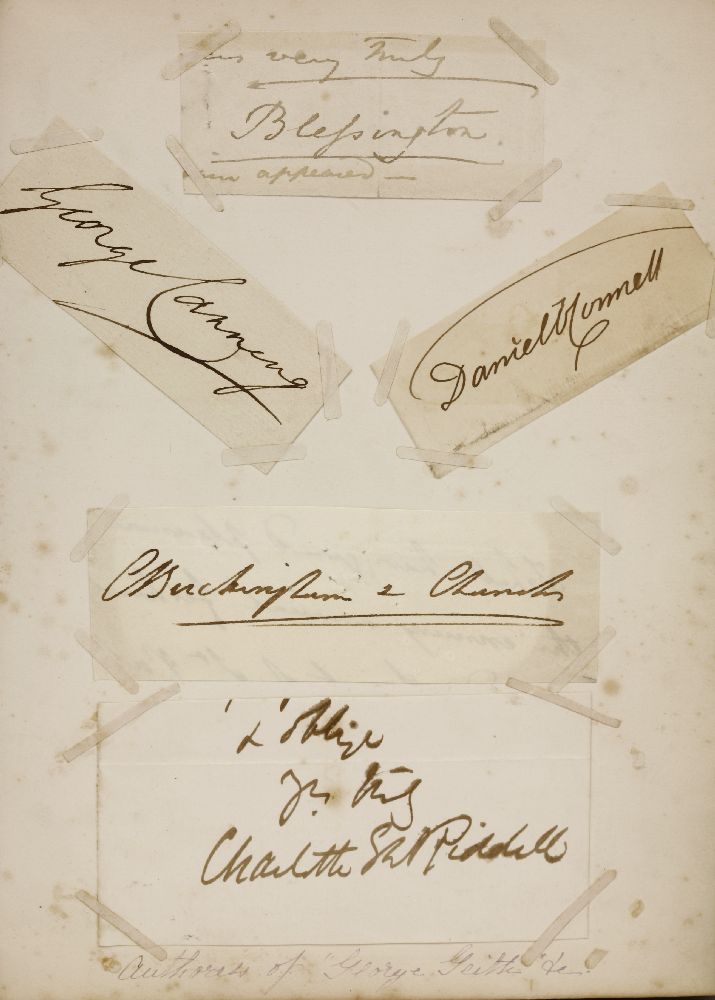 very truly
Blessington
appeared —
George Canning
Daniel O'Connell
Buckingham & Chandos
& oblige
Yrs truly
Charlotte E L Riddell
Authoress of "George Geith" &c.